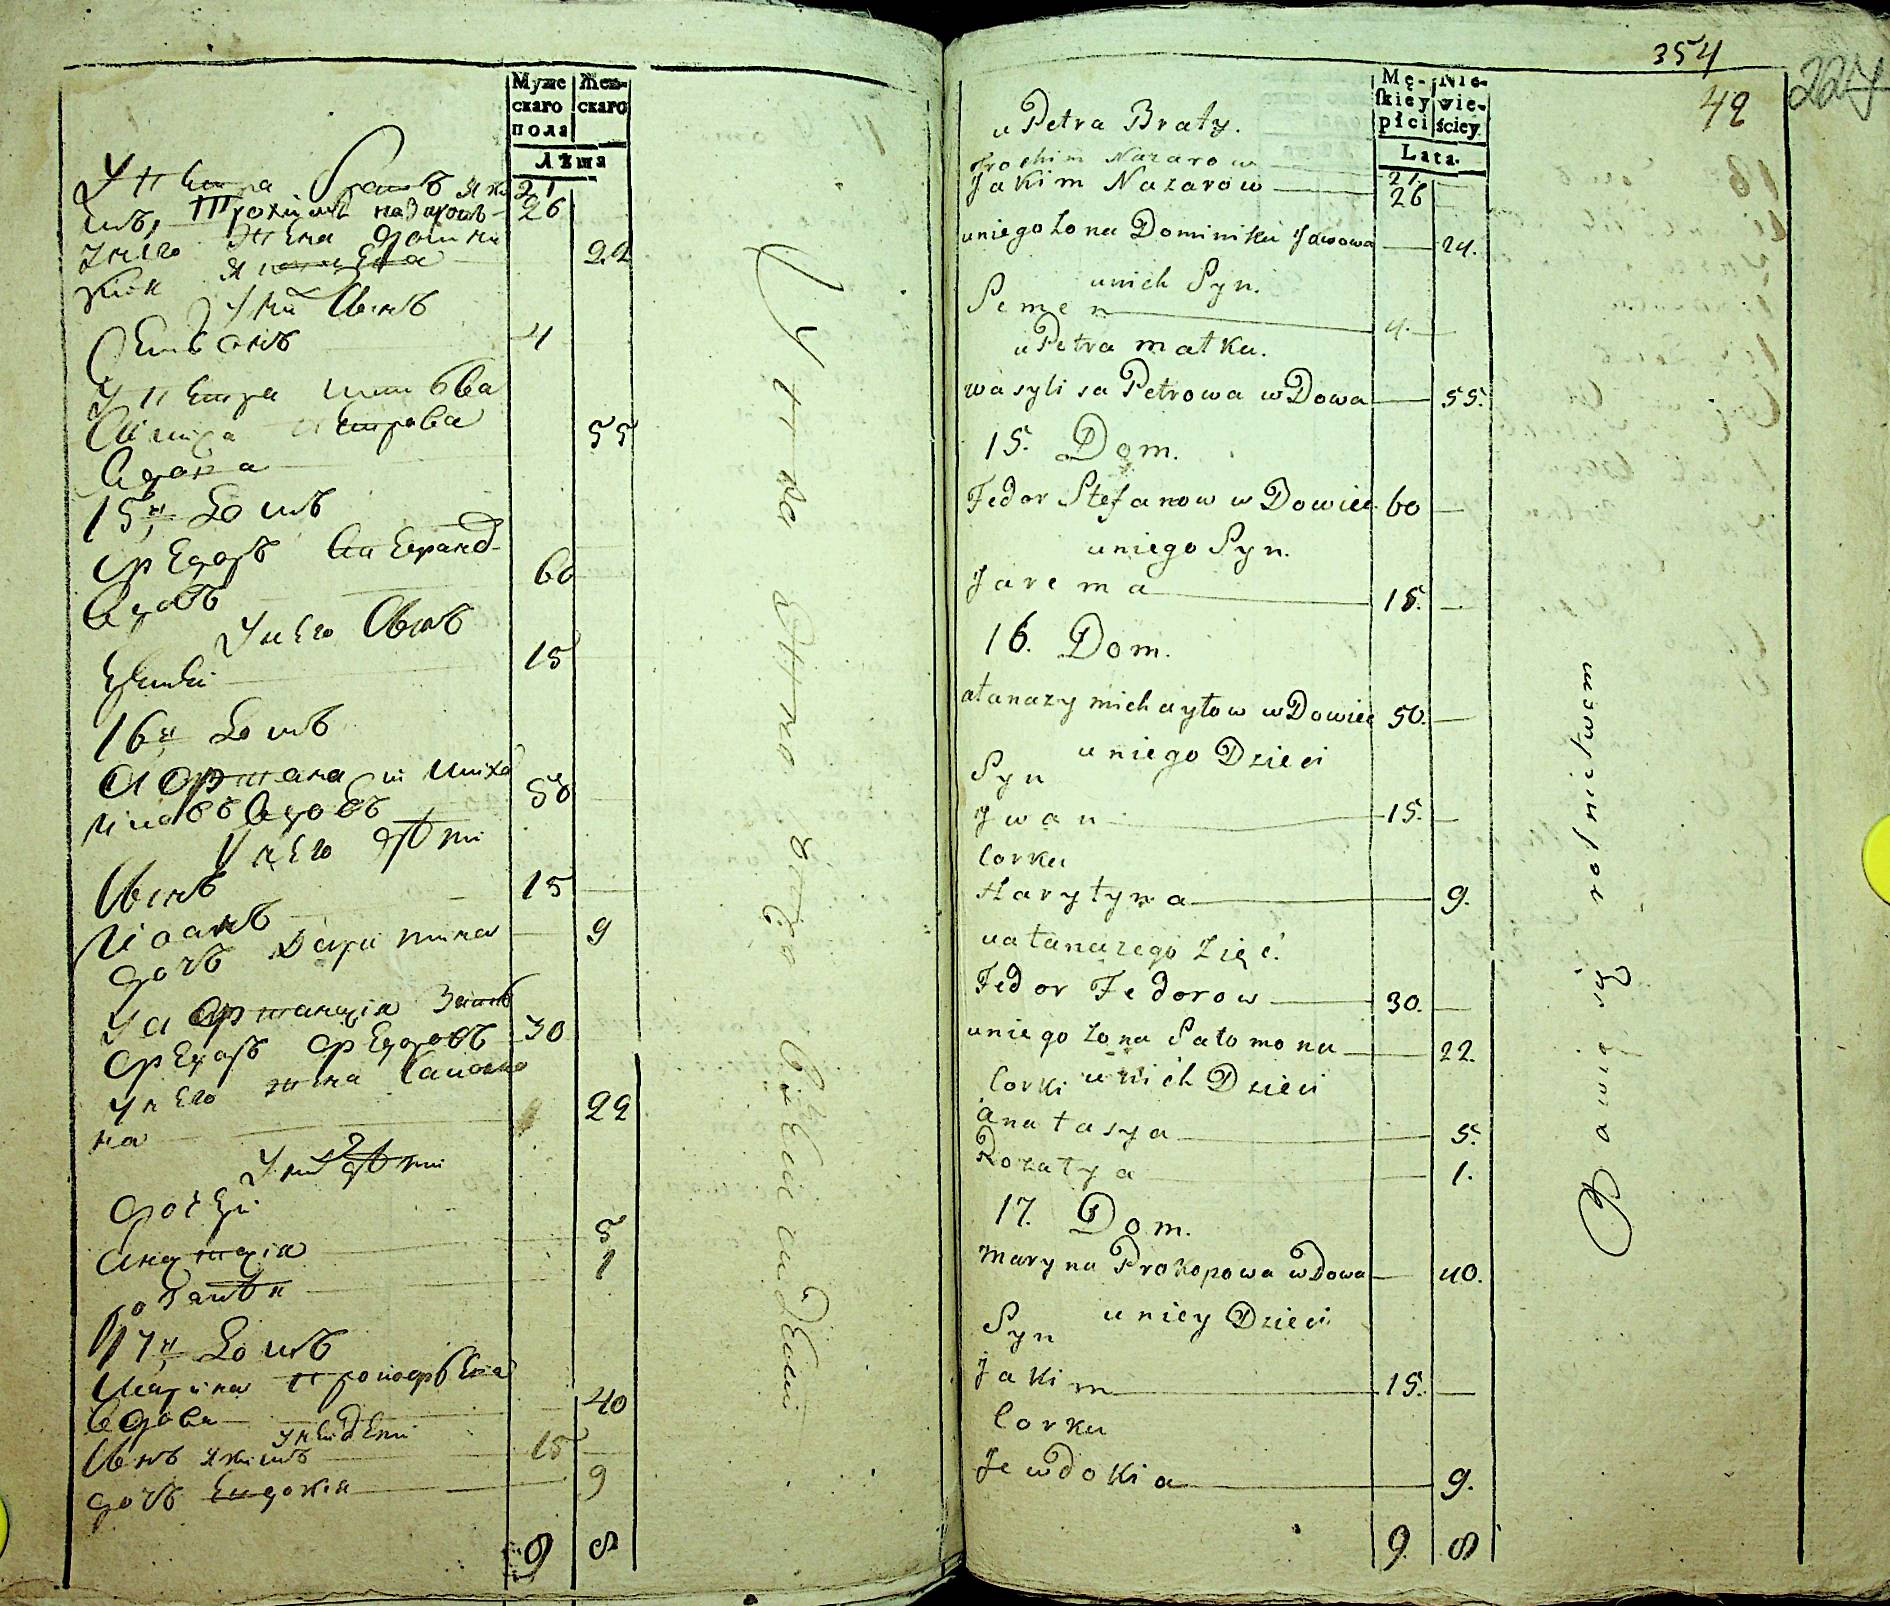 Муже
скаго
пола
Жен-
скаго
Лѣта
У Петра братъ Яки
21
мъ, Трохимъ назаровъ
26
У него жена Домини
22
кия Якимова
У ни Сынъ
Семионъ
4
У Петра мать Ва
силиса Петрова
55
Вдова
15й Домъ
Федоръ Степанов
Вдовъ
60
У него Сынъ
Ерема
15
16й Домъ
Афтанази Миха
йловъ Вдовъ
50
У него дѣти
Сынъ
Иоанъ
15
дочь Харитина
9
У Афтаназия Зять
Федоръ Федоровъ
30
У него жена Саломо
на
22
У ни дѣти
дочери
Анастасия
5
розалия
1
17й Домъ
Марина Прокофьева
Вдова
40
У ней дети
Сынъ Якимъ
15
дочь Евдокия
9
9 8
354
227
42
Mę-
skiey
płci
Nie-
wie-
ściey
Lata.
u Petra Braty.
Trochim Nazarow 21.
Jakim Nazarow 26
uniego żona Dominika Jawowa 24.
unich Syn.
Semen 4.
u Petra matka.
wasylisa Petrowa wDowa 55.
15. Dom.
Fedor Stefanow wDowiec 60
uniego Syn.
Jarema 15.
16. Dom.
atanazy michayłow wDowiec 50.
uniego Dzieci
Syn
Jwan 15.
Corka
Harytyna 9.
uatanazego Zięć.
Fedor Fedorow 30.
uniego żona Sałomona 22.
unich Dzieci
Corki
anatasya 5.
Rozalya 1.
17. Dom.
Maryna Prokopowa wDowa 40.
uniey Dzieci
Syn
Jakim 15.
Corka
Jewdokia 9.
9. 8
Bawią się rolnictwem